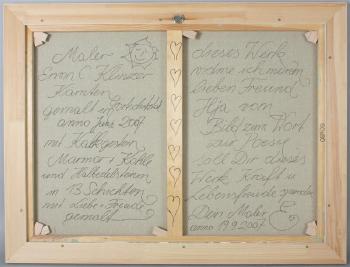 Maler
Kärnten
gemalt in
anno Juni 2007
mit Kalkgestein
Marmor + Kohle
und Halbedelsteinen
in 13 Schichten
mit Liebe + Freude
gemalt
dieses Werk
widme ich meinem
lieben Freund
Ilja von
Bild zum Wort
zur Poesie
soll Dir dieses
Werk Kraft u
Lebensfreude spenden
Dein Maler
anno 19.9.2007